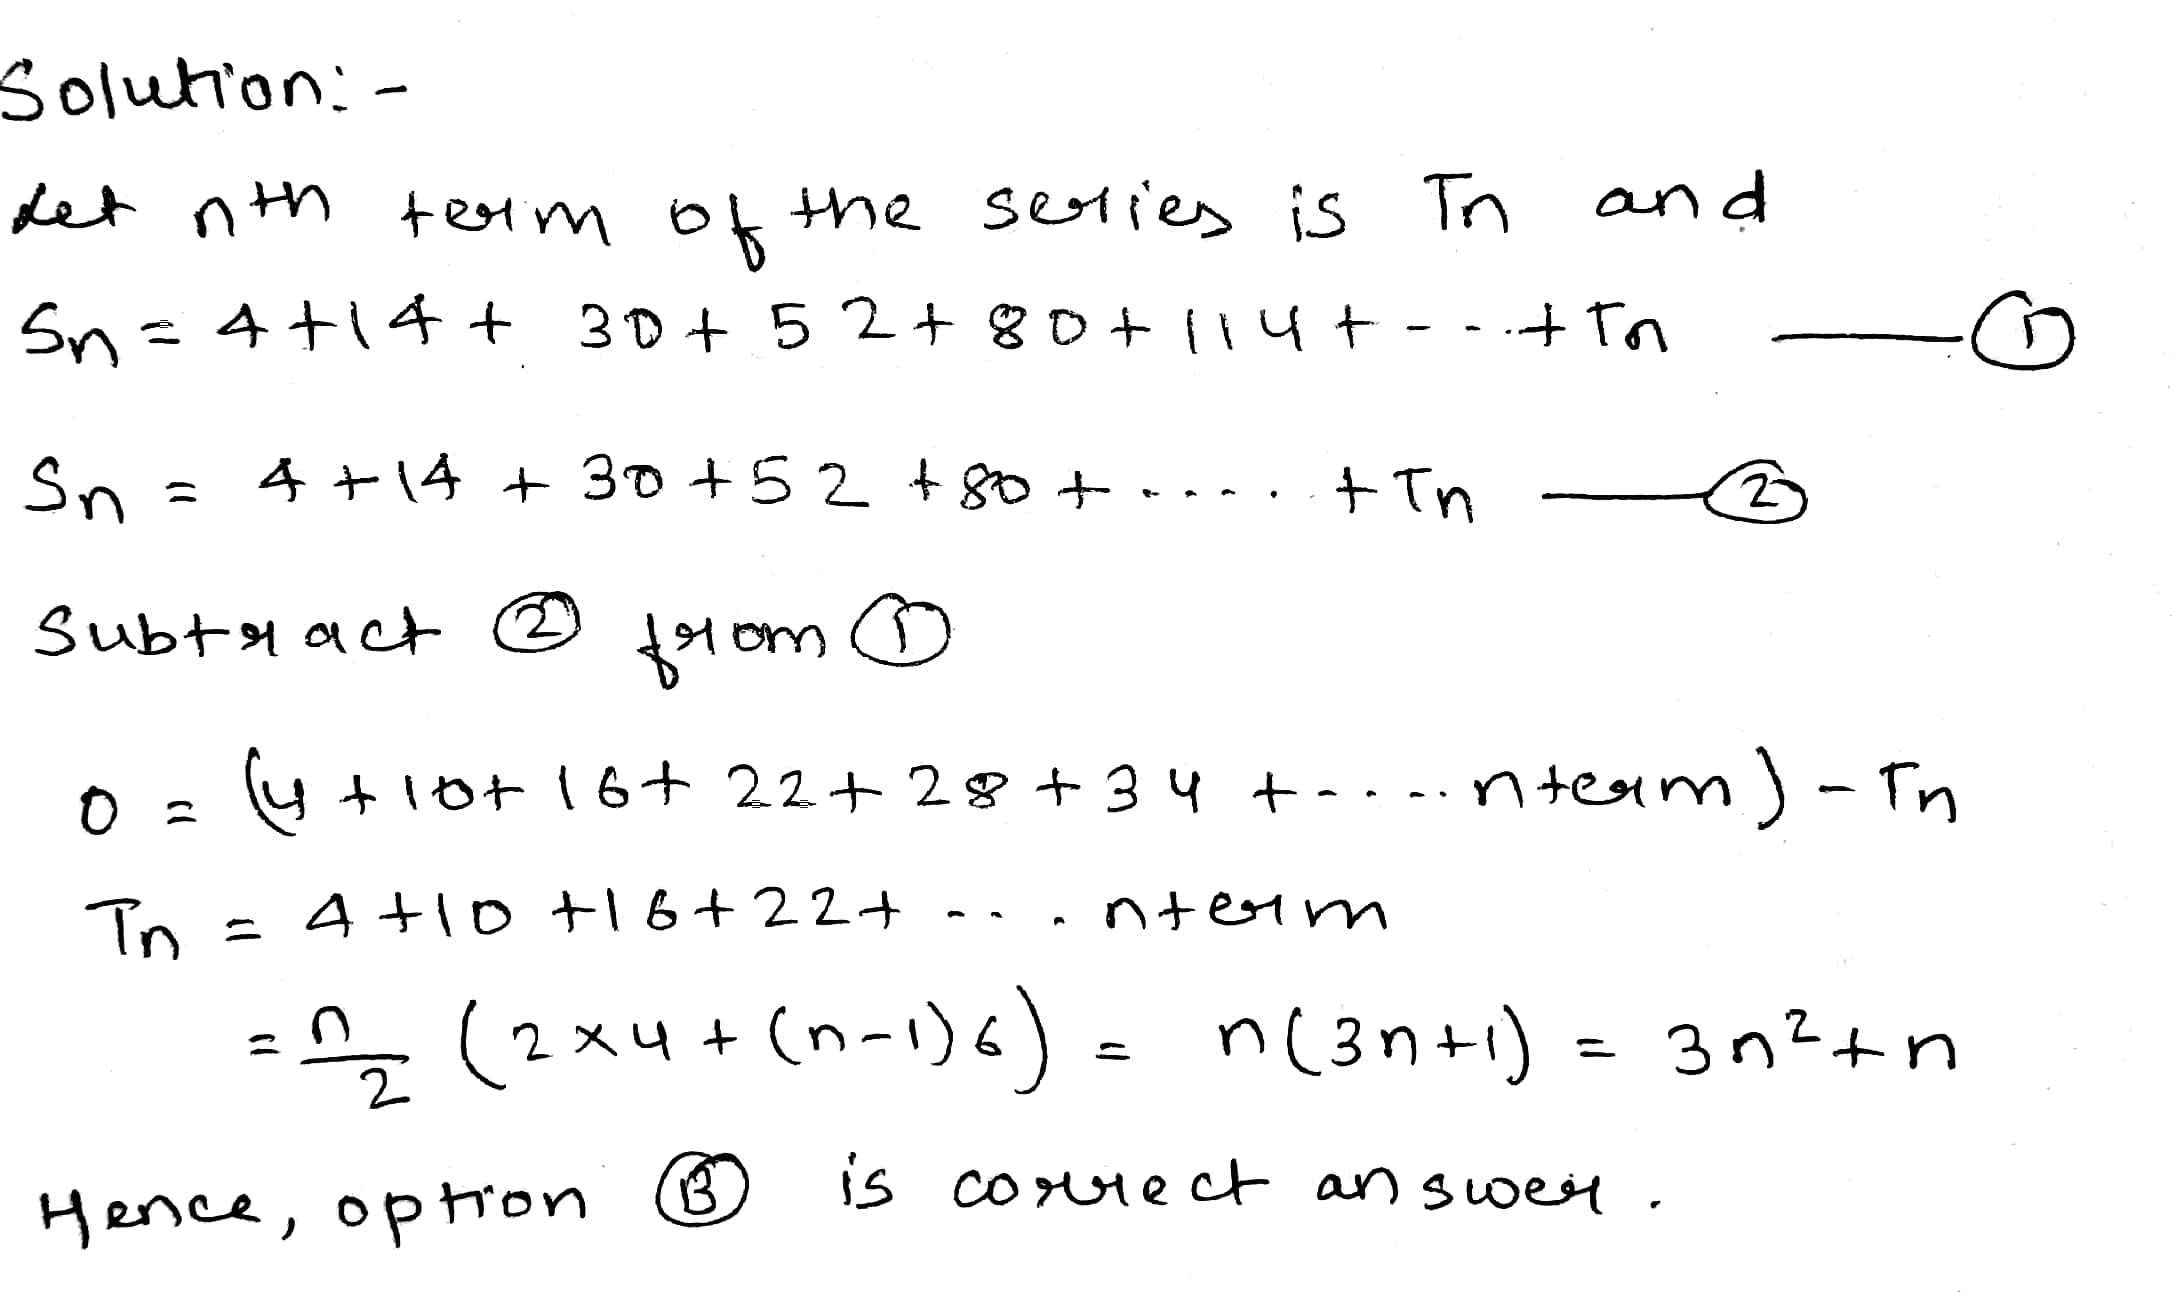 Solution:-
Let nth term of the series is Tn and
Sn = 4+14+ 30+ 52+80+114+---.+Tn —①
Sn = 4+14 + 30+52 +80+.....+Tn —②
Subtract ② from ①
0 = (4+10+16+22+28+34+.....nterm)-Tn
Tn = 4+10+16+22+...nterm
= n/2 (2×4+(n-1)6) = n(3n+1) = 3n²+n
Hence, option Ⓑ is correct answer.